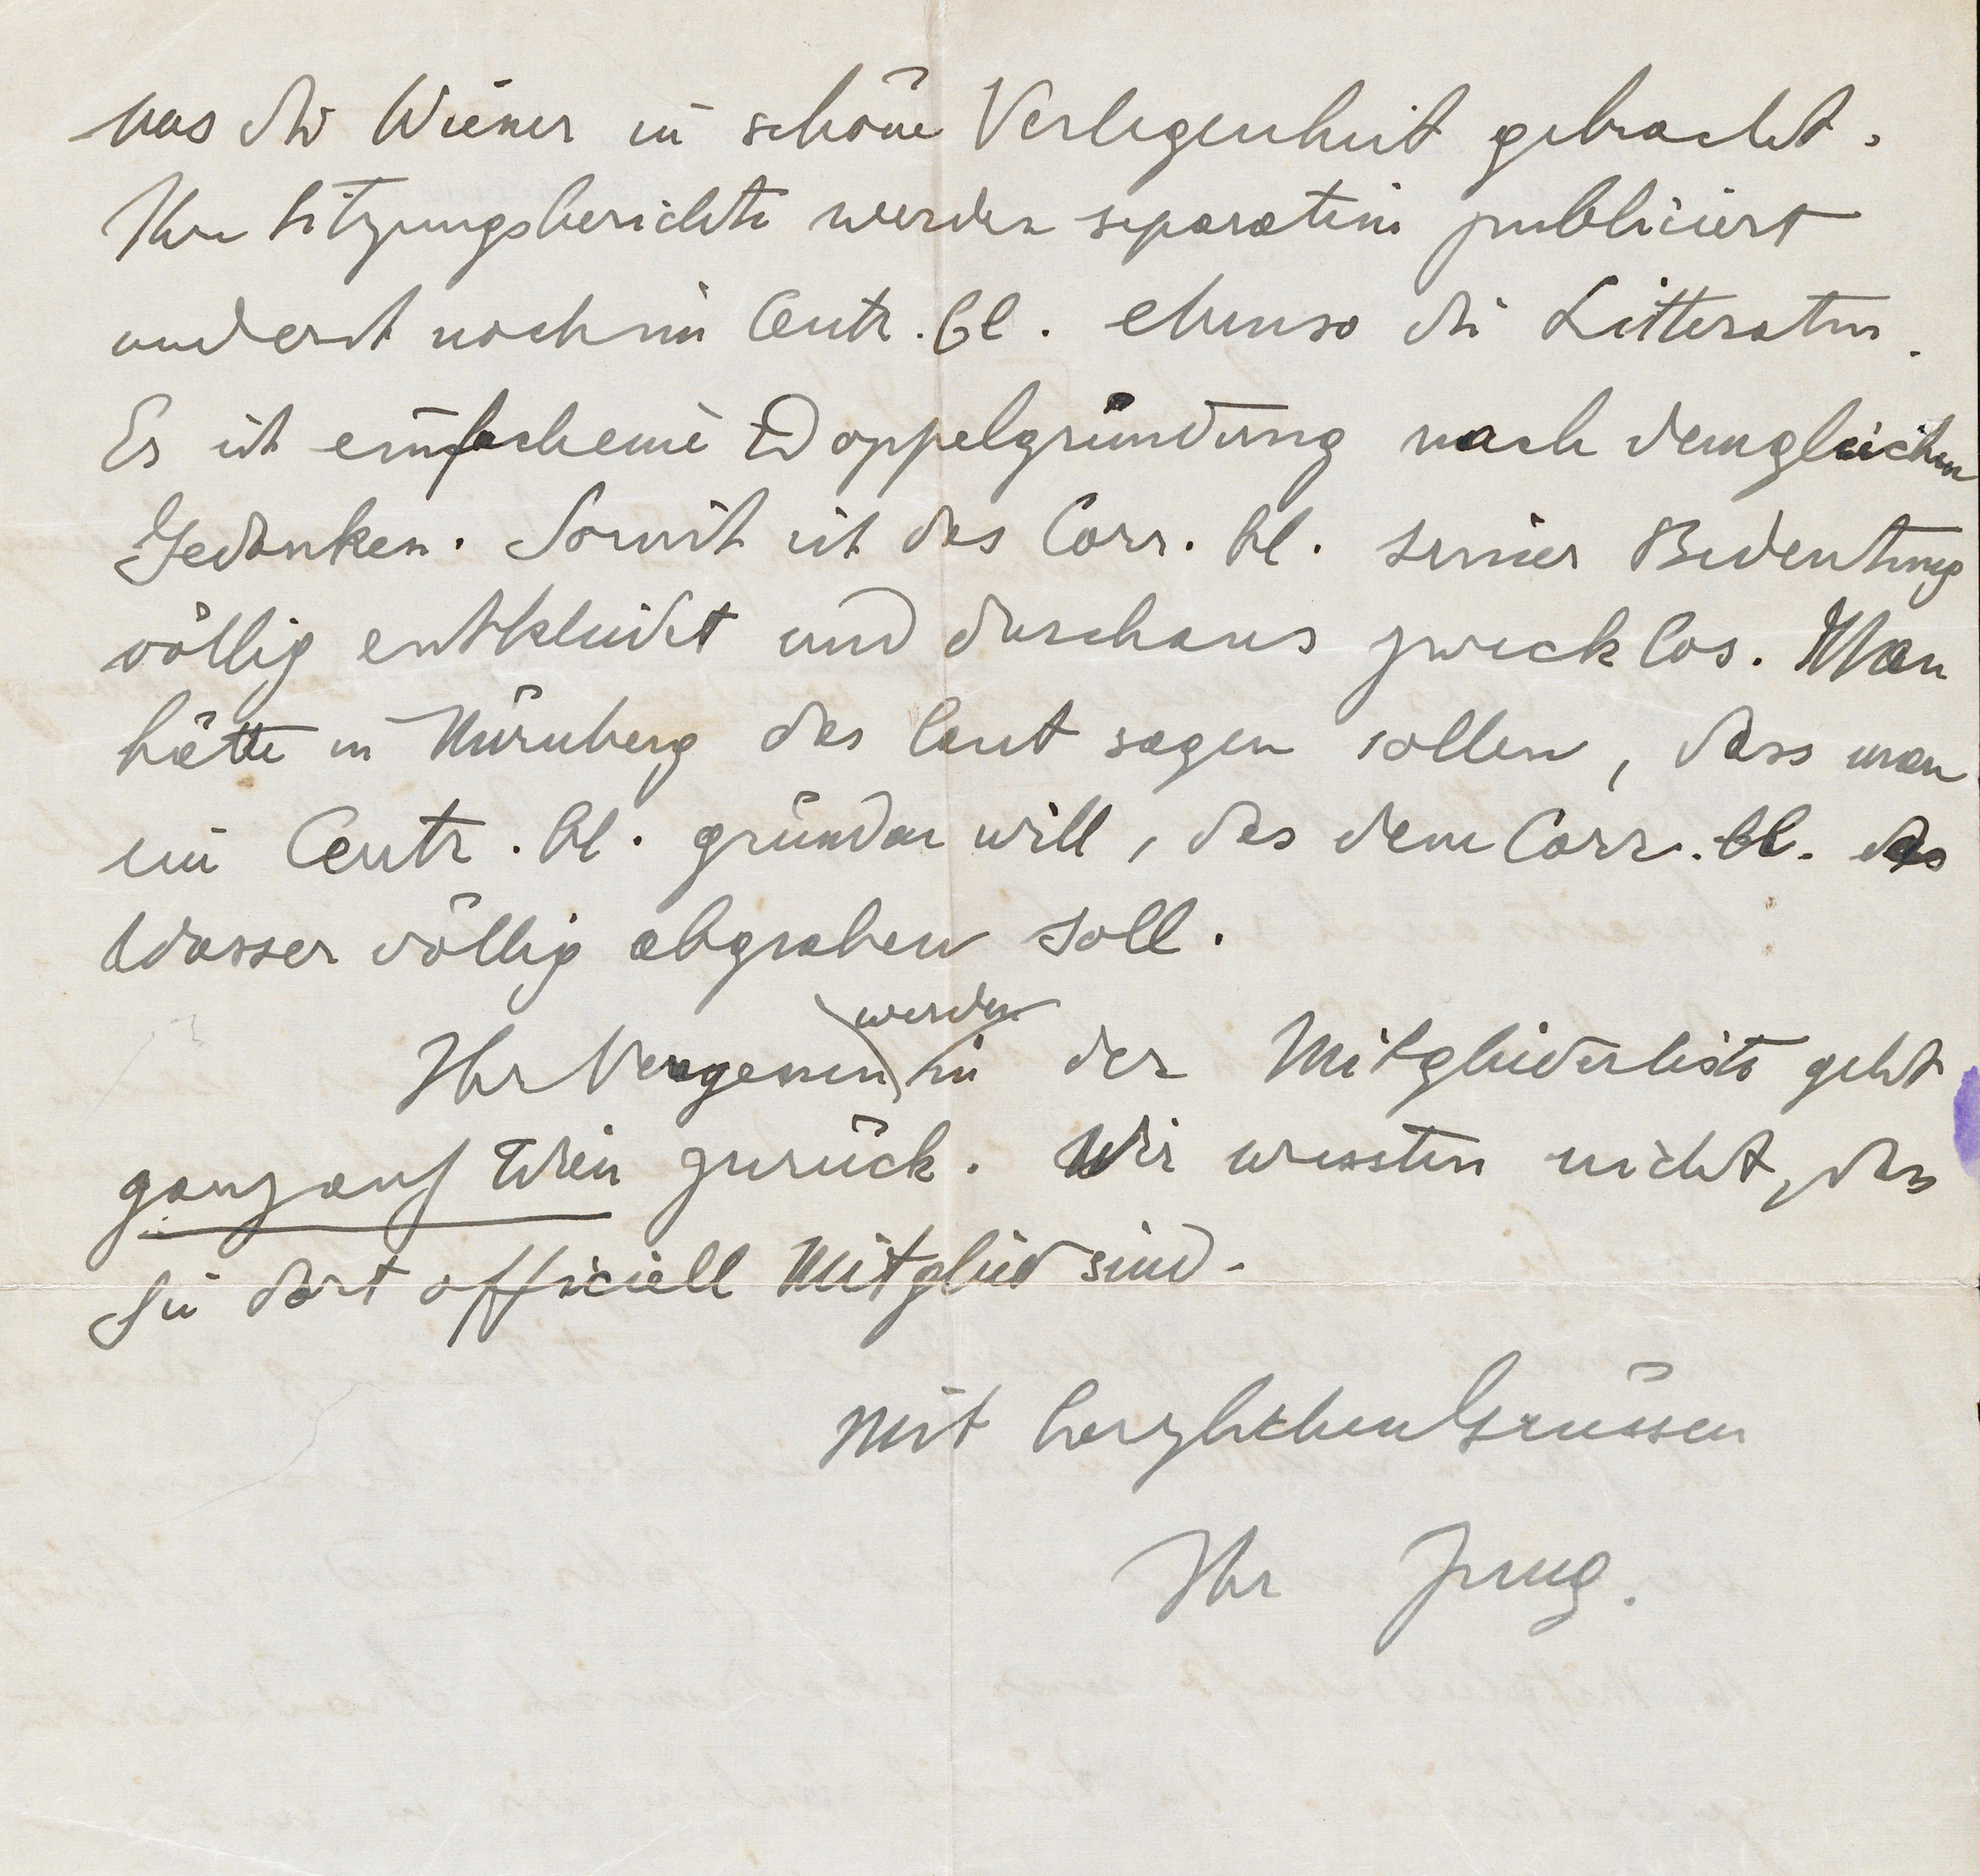 uns die Wiener in schöne Verlegenheit gebracht.
Ihre Sitzungsberichte werden separatim publiciert
und erst noch im Centr. bl. ebenso die Litteratur.
Es ist einfach eine Doppelgründung nach dem gleichen
Gedanken. Somit ist das Corr. bl. seiner Bedeutung
völlig entkleidet und durchaus zwecklos. Man
hätte in Nürnberg das laut sagen sollen, dass man
ein Centr. bl. gründen will, das dem Corr. bl. das
Wasser völlig abgraben soll.
werden
Ihr Vergessen in der Mitgliederliste geht
ganz auf Wien zurück. Wir wussten nicht, dass
Sie dort officiell Mitglied sind.
Mit herzlichen Grüssen
Ihr Jung.